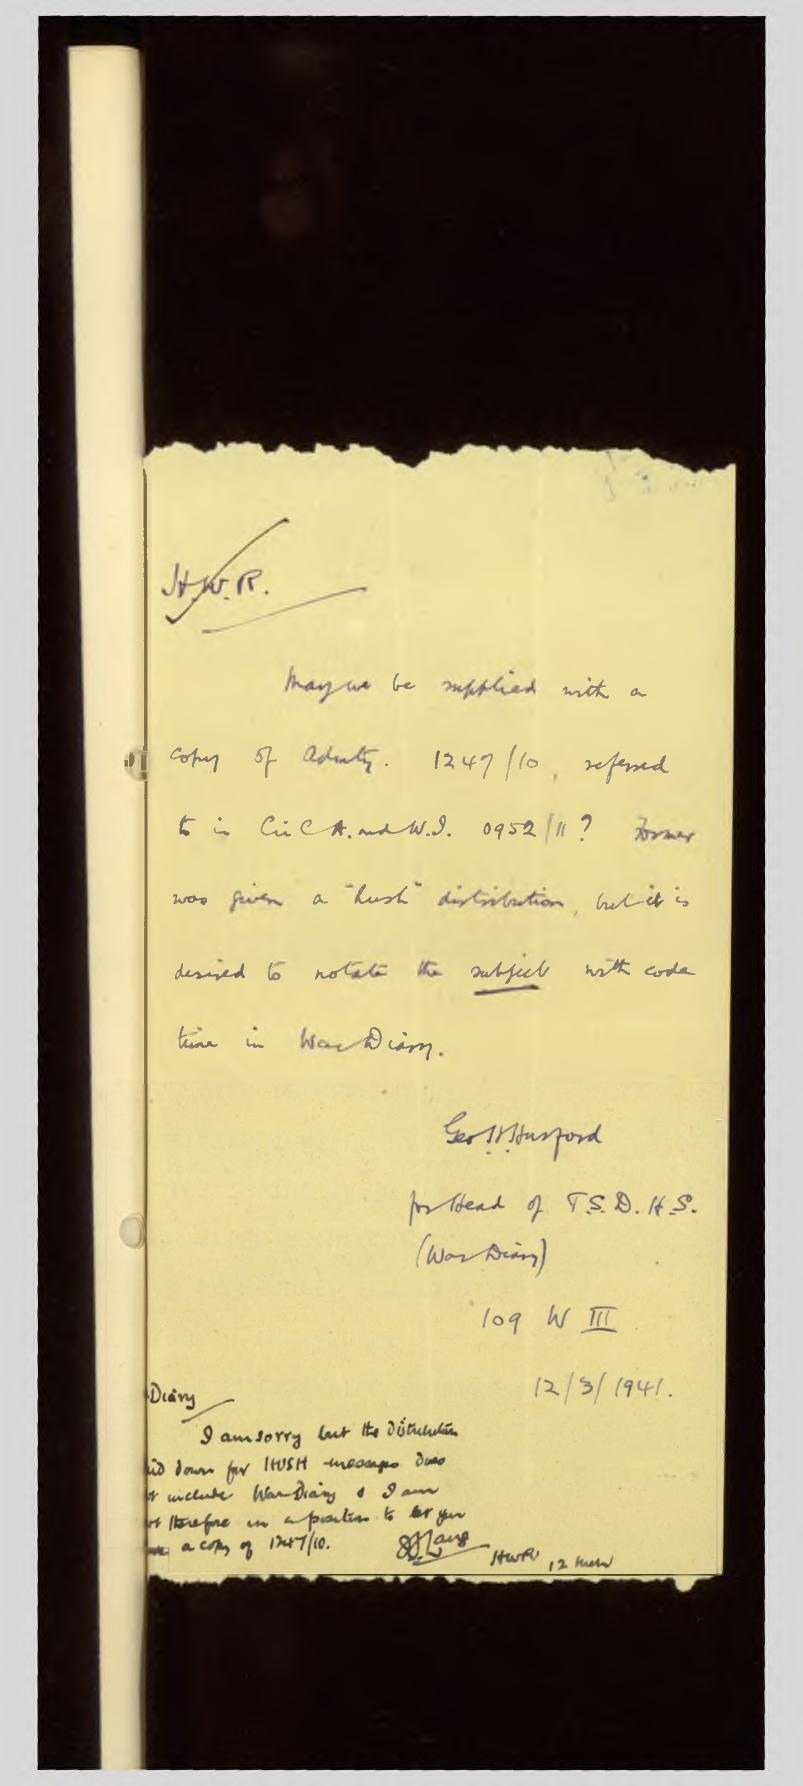 H.W.R.
May we be supplied with a
copy of Admty. 1247/10, referred
to in C in C A. and W.I. 0952/11? Former
was given a "hush" distribution, but it is
desired to notate the subject with code
time in War Diary.
Geo. H.
for Head of T.S.D.H.S.
(War Diary)
109 W III
12/3/1941.
Diary
I am sorry but the distribution
id down for HUSH messages does
t include War Diary & I am
t therefore in a position to let you
a copy of 1247/10.
HWR 12 March